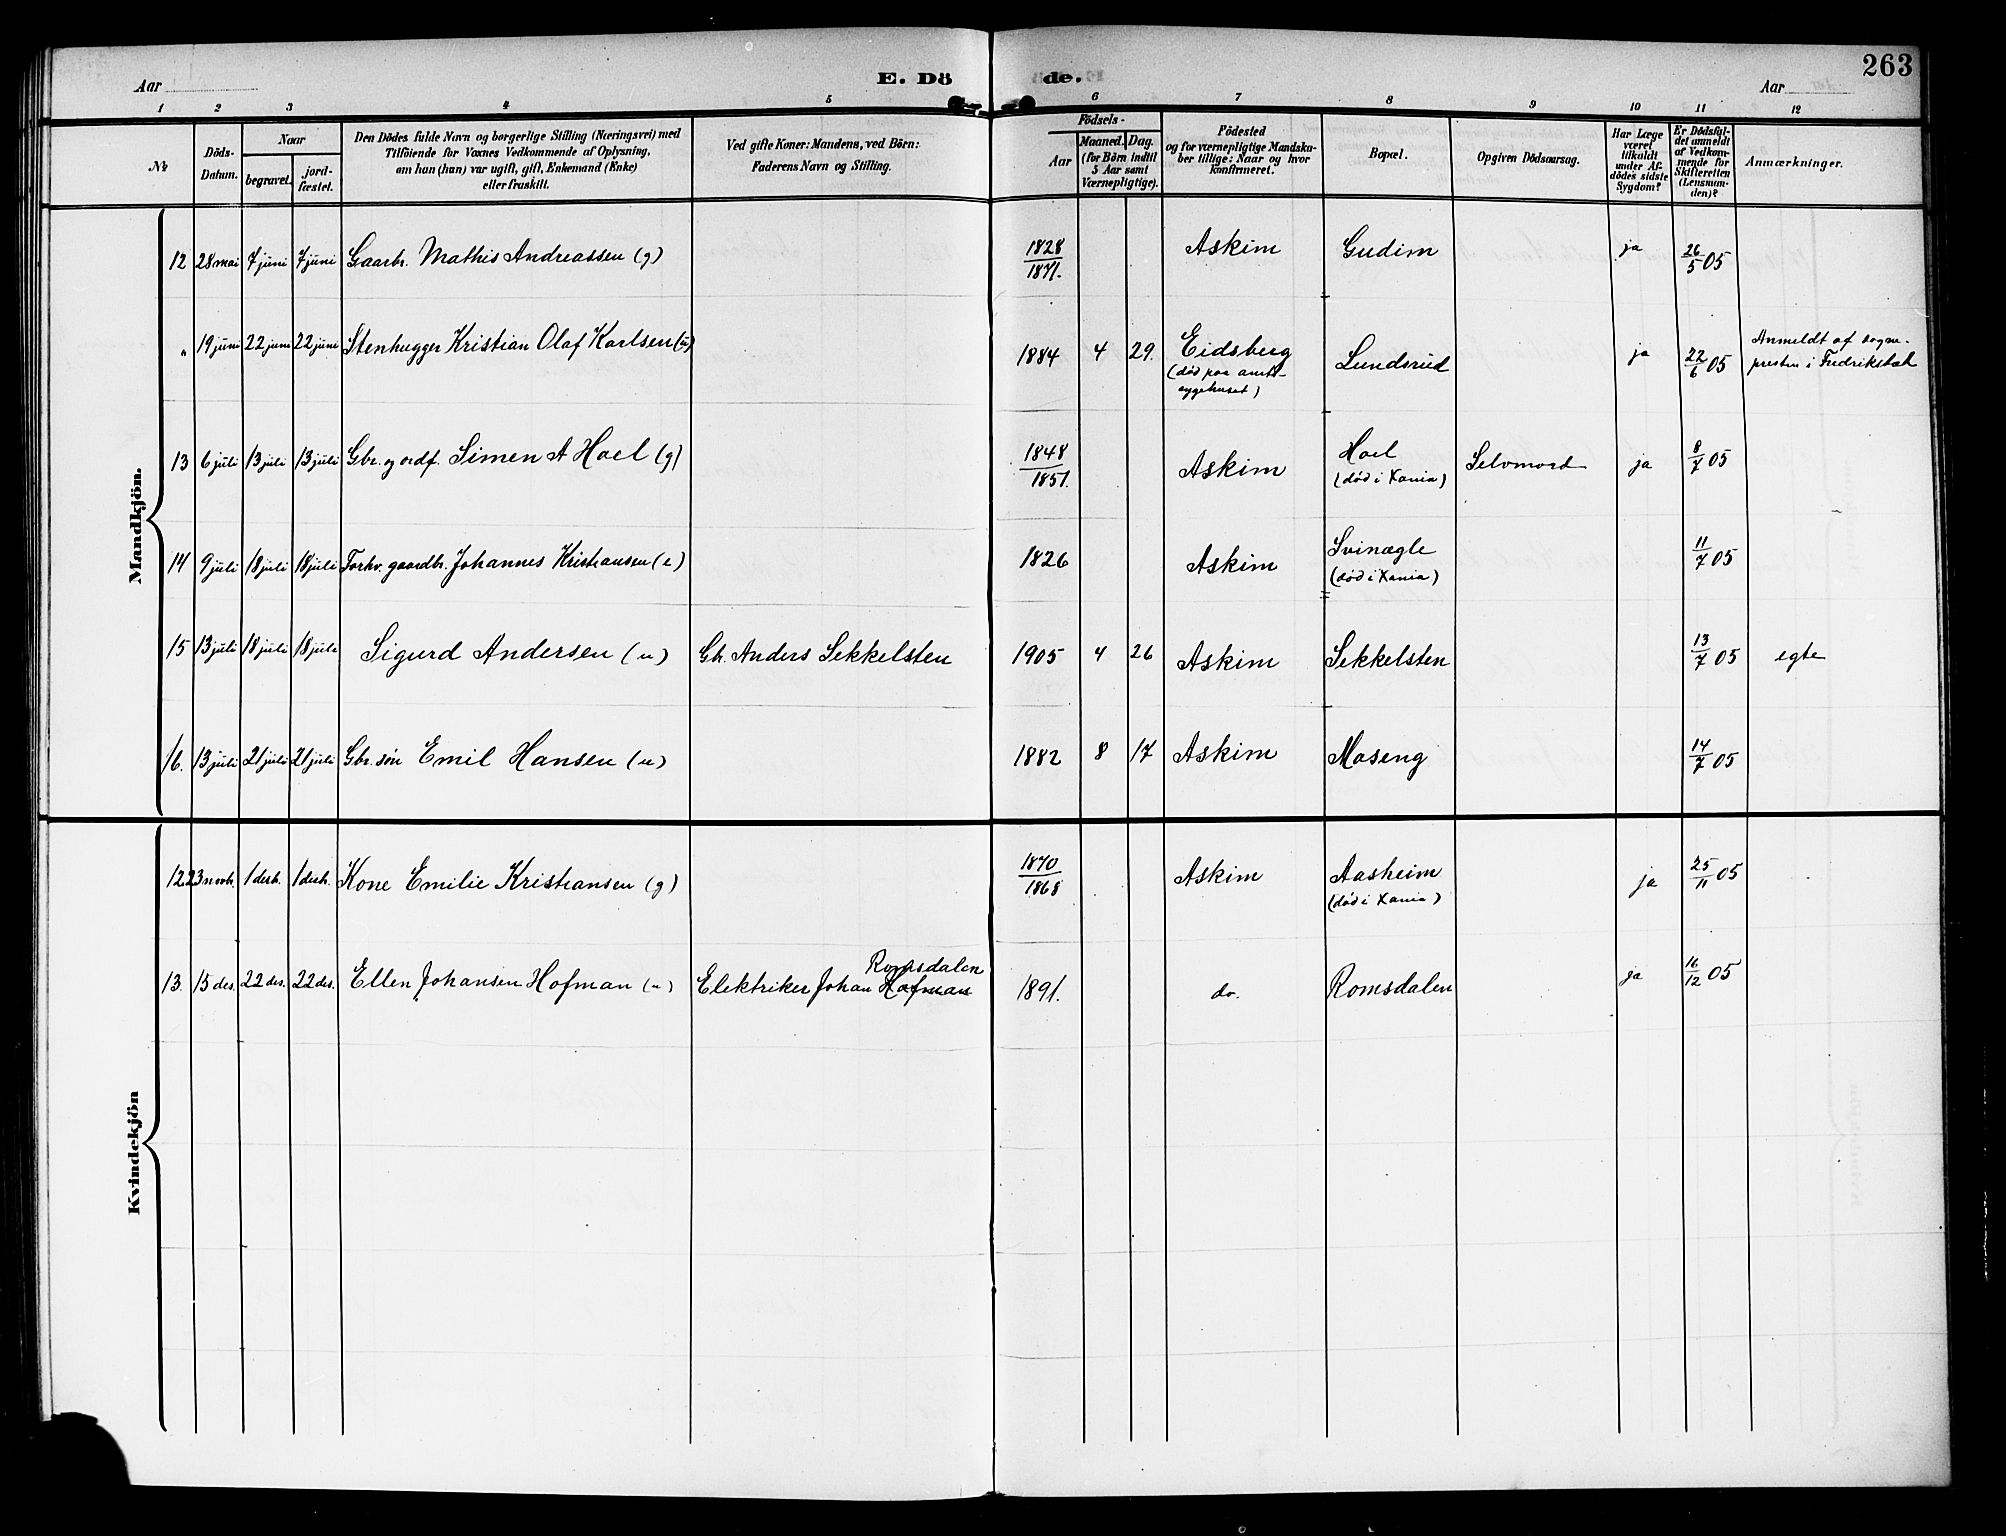 263
Aar
E. Dö
de.
Aar
1 2 3 4 5 6 7 8 9 10 11 12
№
Döds-
Datum.
Naar
begravet.
jord-
fæstet.
Den Dödes fulde Navn og borgerlige Stilling (Næringsvei) med
Tilföiende for Voxnes Vedkommende af Oplysning,
om han (hun) var ugift, gift, Enkemand (Enke)
eller fraskilt.
Ved gifte Koner: Mandens, ved Börn:
Faderens Navn og Stilling.
Födsels-
Aar
Maaned. Dag.
(for Börn indtil
5 Aar samt
Værnepligtige).
Födested
og for værnepligtige Mandska-
ber tillige: Naar og hvor
konfirmeret.
Bopæl.
Opgiven Dödsaarsag.
Har Læge
været
tilkaldt
under Af-
dödes sidste
Sygdom?
Er Dödsfal-
det anmeldt
af Vedkom-
mende for
Skifteretten
(Lensman-
den)?
Anmærkninger.
Mandkjön.
12 28 mai 7 juni 7 juni Gaarbr. Mathis Andreassen (g) 1828/1871. Askim Gudim ja 26/5 05
" 19 juni 22 juni 22 juni Stenhugger Kristian Olaf Karlsen (u) 1884 4 29. Eidsberg Lundsrud ja 22/6 05 Anmeldt af sogne-
(død paa amts- presten i Fredrikstad
sygehuset)
13 6 juli 13 juli 13 juli Gbr. og ordf. Simen A Hoel (g) 1848/1851. Askim Hoel Selvmord ja 8/7 05
(død i Xania)
14 9 juli 18 juli 18 juli Forhv. gaardbr. Johannes Kristiansen (e) 1826 Askim Svinægle 11/7 05
(død i Xania)
15 13 juli 18 juli 18 juli Sigurd Andersen (u) Gb. Anders Sekkelsten 1905 4 26 Askim Sekkelsten 13/7 05 egte
16. 13 juli 21 juli 21 juli Gbr. søn Emil Hansen (u) 1882 8 17 Askim Moseng 14/7 05
Kvindekjön
12 23 novb. 1 desb. 1 desb. Kone Emilie Kristiansen (g) 1870/1868 Askim Aasheim ja 25/11 05
(død i Xania)
Romsdalen
13. 15 des. 22 des. 22 des. Ellen Johansen Hofman (u) Elektriker Johan Hofman 1891. do. Romsdalen ja 16/12 05